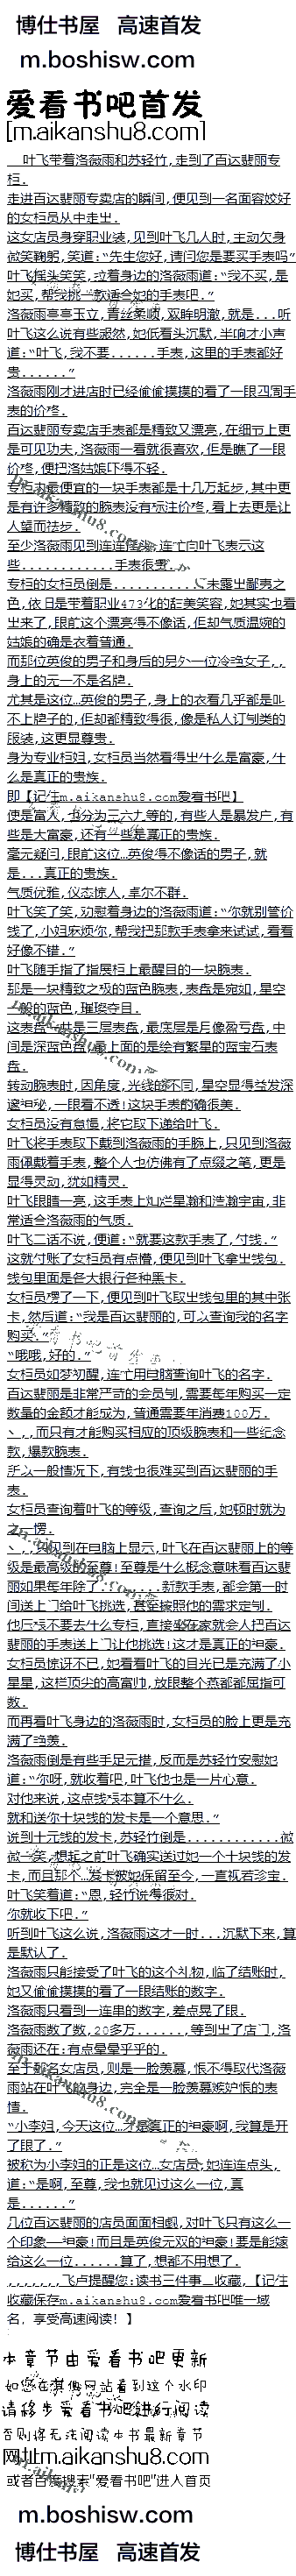 博仕书屋 高速首发
m.boshisw.com
爱看书吧首发
[m.aikanshu8.com]
叶飞带着洛薇雨和苏轻竹,走到了百达翡丽专
柜.
走进百达翡丽专卖店的瞬间,便见到一名面容姣好
的女柜员从中走出.
这女店员身穿职业装,见到叶飞几人时,主动欠身
微笑鞠躬,笑道:“先生您好,请问您是要买手表吗”
叶飞摇头笑笑,拉着身边的洛薇雨道:“我不买,是
她买,帮我挑一款适合她的手表吧.”
洛薇雨亭亭玉立,青丝柔顺,双眸明澈,就是...听
叶飞这么说有些赧然,她低着头沉默,半响才小声
道:“叶飞,我不要......手表,这里的手表都好
贵......”
洛薇雨刚才进店时已经偷偷摸摸的看了一眼四周手
表的价格.
百达翡丽专卖店手表都是精致又漂亮,在细节上更
是可见功夫,洛薇雨一看就很喜欢,但是瞧了一眼
价格,便把洛姑娘吓得不轻.
专柜最便宜的一块手表都是十几万起步,其中更
是有许多精致的腕表没有标注价格,看上去更是让
人望而祛步.
至少洛薇雨见到连连后退,连忙向叶飞表示这
些............手表很贵.
专柜的女柜员倒是............未露出鄙夷之
色,依旧是带着职业473化的甜美笑容,她其实也看
出来了,眼前这个漂亮得不像话,但却气质温婉的
姑娘的确是衣着普通.
而那位英俊的男子和身后的另外一位冷艳女子,,
身上的无一不是名牌.
尤其是这位…英俊的男子,身上的衣着几乎都是叫
不上牌子的,但却都精致得很,像是私人订制类的
服装,这更显尊贵.
身为专业柜妇,女柜员当然看得出什么是富豪,什
么是真正的贵族.
即【记住m.aikanshu8.com爱看书吧】
便是富人,也分为三六九等的,有些人是暴发户,有
些是大富豪,还有一些是真正的贵族.
毫无疑问,眼前这位…英俊得不像话的男子,就
是...真正的贵族.
气质优雅,仪态惊人,卓尔不群.
叶飞笑了笑,劝慰着身边的洛薇雨道:“你就别管价
钱了,小妇麻烦你,帮我把那款手表拿来试试,看看
好像不错.”
叶飞随手指了指展柜上最醒目的一块腕表.
那是一块精致之极的蓝色腕表,表盘是宛如,星空
一般的蓝色,璀璨夺目.
这表盘一共是三层表盘,最底层是月像盈亏盘,中
间是深蓝色盘,最上面的是绘有繁星的蓝宝石表
盘.
转动腕表时,因角度,光线的不同,星空显得益发深
邃神秘,一眼看不透!这块手表的确很美.
女柜员没有怠慢,将它取下递给叶飞.
叶飞将手表取下戴到洛薇雨的手腕上,只见到洛薇
雨佩戴着手表,整个人也仿佛有了点缀之笔,更是
显得灵动,犹如精灵.
叶飞眼睛一亮,这手表上灿烂星瀚和浩瀚宇宙,非
常适合洛薇雨的气质.
叶飞二话不说,便道:“就要这款手表了,付钱.”
这就付账了女柜员有点懵,便见到叶飞拿出钱包.
钱包里面是各大银行各种黑卡.
女柜员愣了一下,便见到叶飞取出钱包里的其中张
卡,然后道:“我是百达翡丽的,可以查询我的名字
购买.”
“哦哦,好的.”
女柜员如梦初醒,连忙用电脑查询叶飞的名字.
百达翡丽是非常严苛的会员制,需要每年购买一定
数量的金额才能成为,普通需要年消费100万.
丶,,而只有才能购买相应的顶级腕表和一些纪念
款,爆款腕表.
所以一般情况下,有钱也很难买到百达翡丽的手
表.
女柜员查询着叶飞的等级,查询之后,她顿时就为
之一愣.
丶,,只见到在电脑上显示,叶飞在百达翡丽上的等
级是最高级的至尊!至尊是什么概念意味着百达翡
丽如果每年除了.......新款手表,都会第一时
间送上门给叶飞挑选,甚至按照他的需求定制.
他压根不要去什么专柜,直接坐在家就会人把百达
翡丽的手表送上门让他挑选!这才是真正的神豪.
女柜员惊讶不已,她看着叶飞的目光已是充满了小
星星,这栏顶尖的高富帅,放眼整个燕都都屈指可
数.
而再看叶飞身边的洛薇雨时,女柜员的脸上更是充
满了艳羡.
洛薇雨倒是有些手足无措,反而是苏轻竹安慰她
道:“你呀,就收着吧,叶飞他也是一片心意.
对他来说,这点钱根本算不什么.
就和送你十块钱的发卡是一个意思.”
说到十元钱的发卡,苏轻竹倒是............微
微一笑,想起之前叶飞确实送过她一个十块钱的发
卡,而且那个…发卡被她保留至今,一直视若珍宝.
叶飞笑着道:“恩,轻竹说得很对.
你就收下吧.”
听到叶飞这么说,洛薇雨这才一时...沉默下来,算
是默认了.
洛薇雨只能接受了叶飞的这个礼物,临了结账时,
她又偷偷摸摸的看了一眼结账的数字.
洛薇雨只看到一连串的数字,差点晃了眼.
洛薇雨数了数,20多万......,等到出了店门,洛
薇雨还在:有点晕晕乎乎的.
至于那名女店员,则是一脸羡慕,恨不得取代洛薇
雨站在叶飞的身边,完全是一脸羡慕嫉妒恨的表
情.
“小李妇,今天这位…才是真正的神豪啊,我算是开
了眼了.”
被称为小李妇的正是这位…女店员,她连连点头,
道:“是啊,至尊,我也就见过这么一位,真
是......”
几位百达翡丽的店员面面相觑,对叶飞只有这么一
个印象——神豪!而且是英俊无双的神豪!要是能嫁
给这么一位......算了,想都不用想了.
,,,,,,,飞卢提醒您:读书三件事—收藏,【记住
收藏保存m.aikanshu8.com爱看书吧唯一域
名，享受高速阅读！】
本章节由爱看书吧更新
如您在其他网站看到这个水印
请移步爱看书吧进行阅读
否则将无法阅读本书最新章节
网址m.aikanshu8.com
或者百度搜索“爱看书吧”进入首页
m.boshisw.com
博仕书屋 高速首发